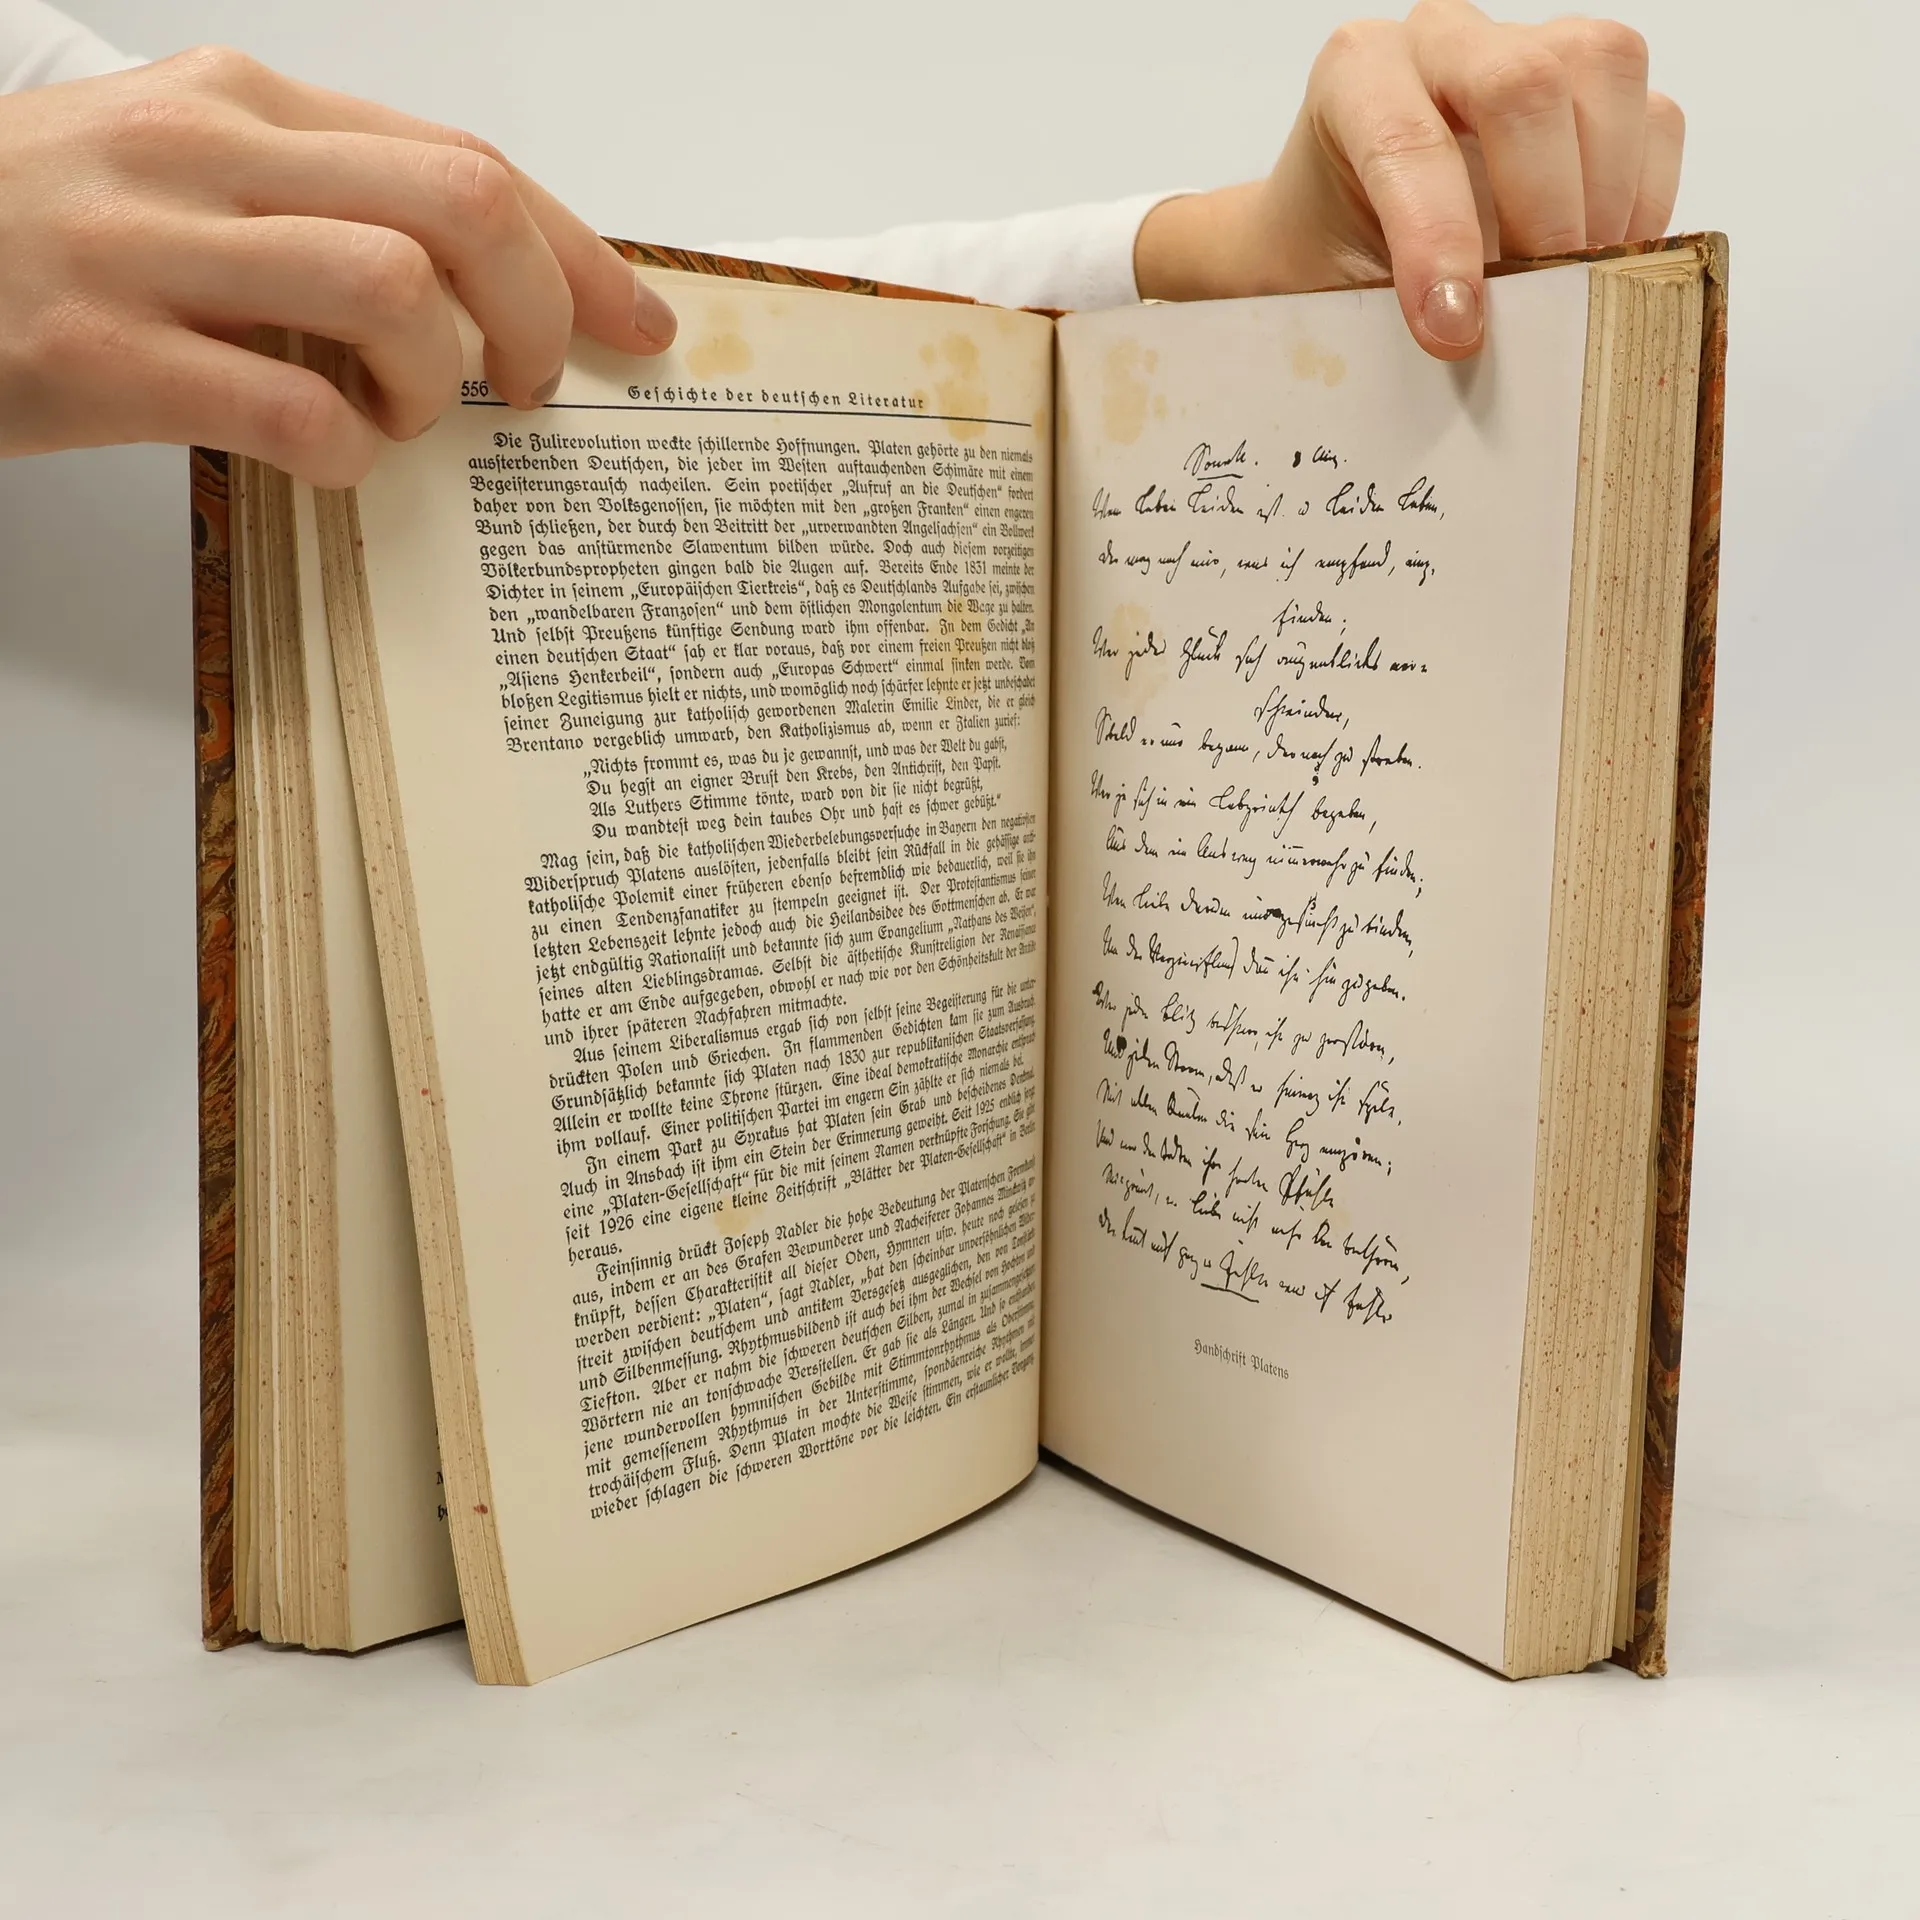 556
Geschichte der deutschen Literatur
Die Julirevolution weckte schillernde Hoffnungen. Platen gehörte zu den niemals
aussterbenden Deutschen, die jeder im Westen auftauchenden Schimäre mit einem
Begeisterungsrausch nacheilen. Sein poetischer „Aufruf an die Deutschen“ fordert
daher von den Volksgenossen, sie möchten mit den „großen Franken“ einen engeren
Bund schließen, der durch den Beitritt der „urverwandten Angelsachsen“ ein Bollwerk
gegen das anstürmende Slawentum bilden würde. Doch auch diesem vorzeitigen
Völkerbundspropheten gingen bald die Augen auf. Bereits Ende 1831 meinte der
Dichter in seinem „Europäischen Tierkreis“, daß es Deutschlands Aufgabe sei, zwischen
den „wandelbaren Franzosen“ und dem östlichen Mongolentum die Wage zu halten.
Und selbst Preußens künftige Sendung ward ihm offenbar. In dem Gedicht „An
einen deutschen Staat“ sah er klar voraus, daß vor einem freien Preußen nicht bloß
„Asiens Henkerbeil“, sondern auch „Europas Schwert“ einmal sinken werde. Vom
bloßen Legitismus hielt er nichts, und womöglich noch schärfer lehnte er jetzt unbeschadet
seiner Zuneigung zur katholisch gewordenen Malerin Emilie Linder, die er gleich
Brentano vergeblich umwarb, den Katholizismus ab, wenn er Italien zurief:
„Nichts frommt es, was du je gewannst, und was der Welt du gabst,
Du hegst an eigner Brust den Krebs, den Antichrist, den Papst.
Als Luthers Stimme tönte, ward von dir sie nicht begrüßt,
Du wandtest weg dein taubes Ohr und hast es schwer gebüßt.“
Mag sein, daß die katholischen Wiederbelebungsversuche in Bayern den negativen
Widerspruch Platens auslösten, jedenfalls bleibt sein Rückfall in die gehässige anti-
katholische Polemik einer früheren ebenso befremdlich wie bedauerlich, weil sie ihn
zu einen Tendenzfanatiker zu stempeln geeignet ist. Der Protestantismus seiner
letzten Lebenszeit lehnte jedoch auch die Heilandsidee des Gottmenschen ab. Er war
jetzt endgültig Rationalist und bekannte sich zum Evangelium „Nathans des Weisen“,
seines alten Lieblingsdramas. Selbst die ästhetische Kunstreligion der Renaissance
hatte er am Ende aufgegeben, obwohl er nach wie vor den Schönheitskult der Antike
und ihrer späteren Nachfahren mitmachte.
Aus seinem Liberalismus ergab sich von selbst seine Begeisterung für die unter-
drückten Polen und Griechen. In flammenden Gedichten kam sie zum Ausbruch.
Grundsätzlich bekannte sich Platen nach 1830 zur republikanischen Staatsverfassung.
Allein er wollte keine Throne stürzen. Eine ideal demokratische Monarchie entsprach
ihm vollauf. Einer politischen Partei im engern Sin zählte er sich niemals bei.
In einem Park zu Syrakus hat Platen sein Grab und bescheidenes Denkmal.
Auch in Ansbach ist ihm ein Stein der Erinnerung geweiht. Seit 1925 endlich sorgt
eine „Platen-Gesellschaft“ für die mit seinem Namen verknüpfte Forschung. Sie gibt
seit 1926 eine eigene kleine Zeitschrift „Blätter der Platen-Gesellschaft“ in Berlin
heraus.
Feinsinnig drückt Joseph Nadler die hohe Bedeutung der Platenschen Formkunst
aus, indem er an des Grafen Bewunderer und Nacheiferer Johannes Minckwitz an
knüpft, dessen Charakteristik all dieser Oden, Hymnen usw. heute noch gelesen zu
werden verdient: „Platen“, sagt Nadler, „hat den scheinbar unversöhnlichen Wider-
streit zwischen deutschem und antikem Versgesetz ausgeglichen, den von Tonstärke
und Silbenmessung. Rhythmusbildend ist auch bei ihm der Wechsel von Hochton und
Tiefton. Aber er nahm die schweren deutschen Silben, zumal in zusammengesetzten
Wörtern nie an tonschwache Versstellen. Er gab sie als Längen. Und so entstanden
jene wundervollen hymnischen Gebilde mit Stimmtonrhythmus als Oberstimme,
mit gemessenem Rhythmus in der Unterstimme, spondäenreiche Rhythmen mit
trochäischem Fluß. Denn Platen mochte die Weise stimmen, wie er wollte, immer
wieder schlagen die schweren Worttöne vor die leichten. Ein erstaunlicher Vorgang,
Sonett. Aug.
Wem Leben Leiden ist u Leiden Leben,
Der mag nach mir, was ich empfand, emp-
finden;
Wer jedes Glück sah augenblicks ver-
schwinden,
Sobald er nur begann, darnach zu streben.
Wer je sich in ein Labyrinth begeben,
Aus dem ein Ausweg nimmermehr zu finden,
Wen Liebe darum nur gesucht zu binden,
Um der Verzweiflung dann ihn hinzugeben.
Wer jeden Blitz beschwor, ihn zu zerstören,
Und jeden Strom, daß er hinweg ihn spüle,
Mit allen Qualen die sein Herz empören;
Und wer den Todten ihre harten Pfühle
Misgönnt, wo Liebe nicht mehr kann bethören,
Der kennt mich ganz u fühlet was ich fühle
Handschrift Platens